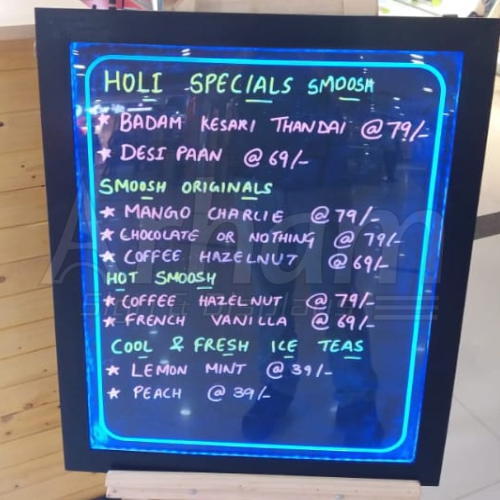 HOLI SPECIALS SMOOSH
★ BADAM KESARI THANDAI @ 79/-
★ DESI PAAN @ 69/-
SMOOSH ORIGINALS
★ MANGO CHARLIE @ 79/-
★ CHOCOLATE OR NOTHING @ 79/-
★ COFFEE HAZELNUT @ 69/-
HOT SMOOSH
★ COFFEE HAZELNUT @ 79/-
★ FRENCH VANILLA @ 69/-
COOL & FRESH ICE TEAS
★ LEMON MINT @ 39/-
★ PEACH @ 39/-